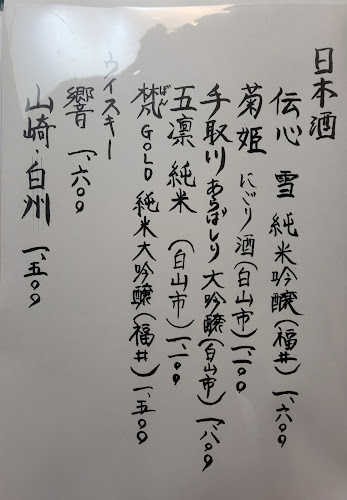 日本酒
伝心 雪 純米吟醸(福井) 一、六〇〇
菊姫 にごり酒(白山市)一、一〇〇
手取川 あらばしり 大吟醸(白山市)一、八〇〇
五凛 純米 (白山市)一、一〇〇
梵 ぼん GOLD 純米大吟醸(福井)一、五〇〇
ウイスキー
響 一、六〇〇
山崎・白州 一、五〇〇